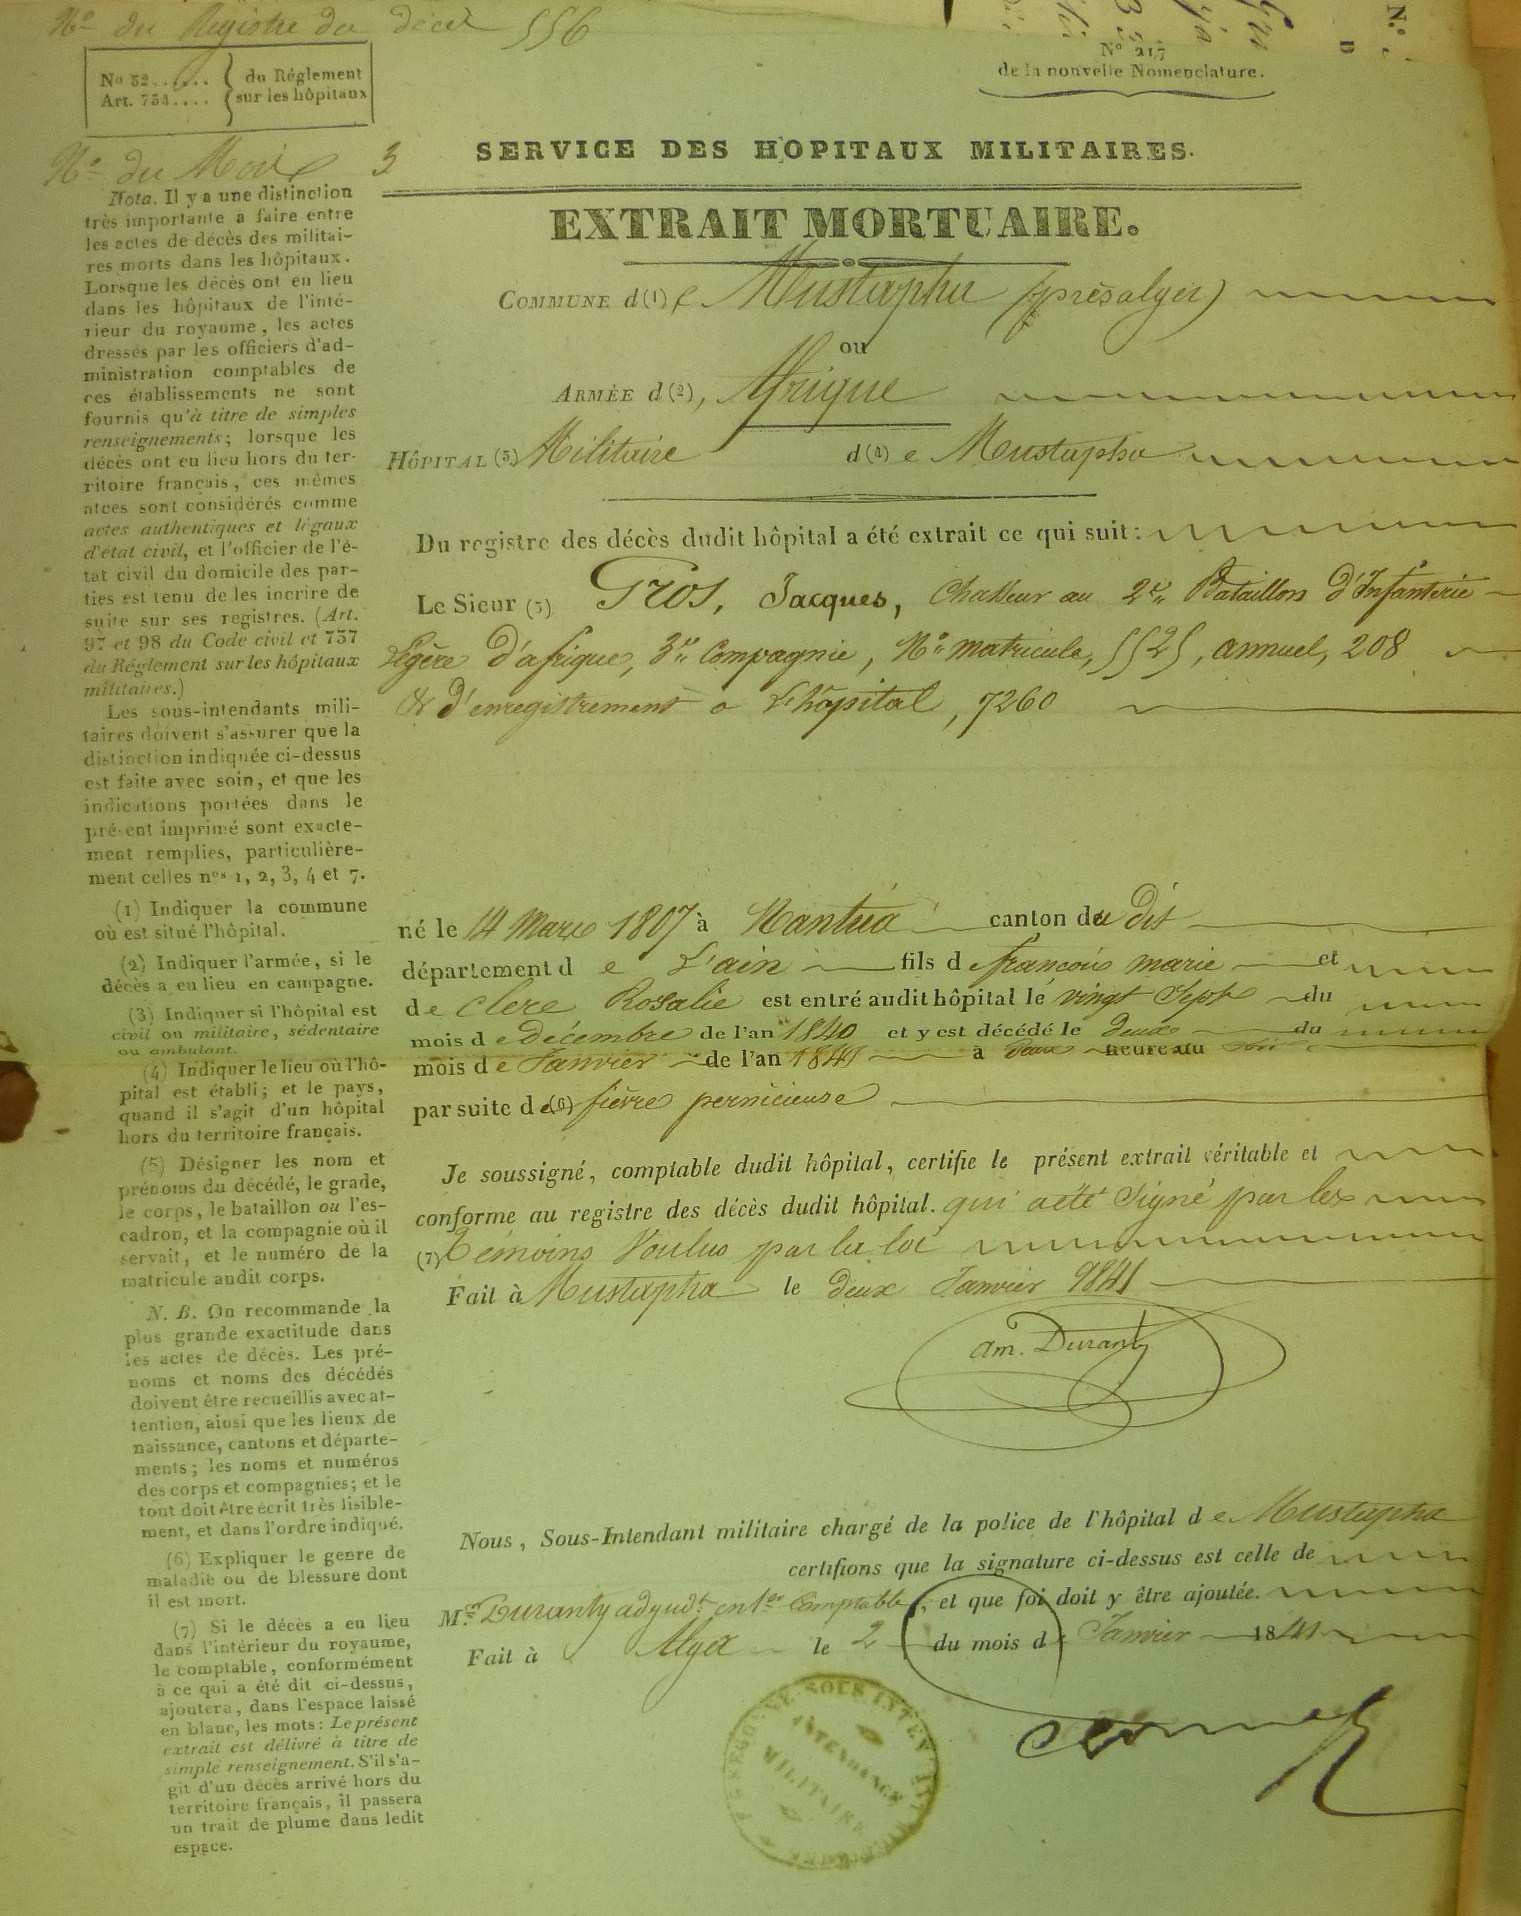 No du Registre du décès 556
No 52...... du Réglement
Art. 734.... sur les hôpitaux
No du Mois 3
No 217
de la nouvelle Nomenclature.
SERVICE DES HOPITAUX MILITAIRES.
EXTRAIT MORTUAIRE.
COMMUNE d (1) e Mustapha (près alger)
ou
ARMÉE d (2), Afrique
HÔPITAL (3) Militaire d (4) e Mustapha
Du registre des décès dudit hôpital a été extrait ce qui suit :
Le Sieur (5) Gros, Jacques, Chasseur au 2e Bataillon d'Infanterie
Légère d'afrique, 3e Compagnie, No matricule, 5525, annuel, 208
& d'enregistrement a L'hôpital, 7260
né le 14 Mars 1807 à Nantua canton du dit
département d e L'ain fils d e francois marie et
de Clere Rosalie est entré audit hôpital le vingt Sept du
mois d e décembre de l'an 1840 et y est décédé le deux du
mois d e Janvier de l'an 1841 à deux heure du soir
par suite d e (6) fièvre pernicieuse
Je soussigné, comptable dudit hôpital, certifie le présent extrait véritable et
conforme au registre des décès dudit hôpital. qui a été Signé par les
(7) témoins Voulus par la loi
Fait à Mustapha le deux Janvier 1841
am. Duranty
Nous, Sous-Intendant militaire chargé de la police de l'hôpital d e Mustapha
certifions que la signature ci-dessus est celle de
Mr Duranty adjudt en 1er Comptable, et que foi doit y être ajoutée.
Fait à Alger le 2 du mois d Janvier 1841
INTENDANCE
MILITAIRE
Nota. Il y a une distinction
très importante à faire entre
les actes de décès des militai-
res morts dans les hôpitaux.
Lorsque les décès ont eu lieu
dans les hôpitaux de l'inté-
rieur du royaume, les actes
dressés par les officiers d'ad-
ministration comptables de
ces établissements ne sont
fournis qu'à titre de simples
renseignements; lorsque les
décès ont eu lieu hors du ter-
ritoire français, ces mêmes
atces sont considérés comme
actes authentiques et légaux
d'état civil, et l'officier de l'é-
tat civil du domicile des par-
ties est tenu de les incrire de
suite sur ses registres. (Art.
97 et 98 du Code civil et 737
du Réglement sur les hôpitaux
militaires.)
Les sous-intendants mili-
taires doivent s'assurer que la
distinction indiquée ci-dessus
est faite avec soin, et que les
indications portées dans le
présent imprimé sont exacte-
ment remplies, particulière-
ment celles nos 1, 2, 3, 4 et 7.
(1) Indiquer la commune
où est situé l'hôpital.
(2) Indiquer l'armée, si le
décès a eu lieu en campagne.
(3) Indiquer si l'hôpital est
civil ou militaire, sédentaire
ou ambulant.
(4) Indiquer le lieu où l'hô-
pital est établi; et le pays,
quand il s'agit d'un hôpital
hors du territoire français.
(5) Désigner les nom et
prénoms du décédé, le grade,
le corps, le bataillon ou l'es-
cadron, et la compagnie où il
servait, et le numéro de la
matricule audit corps.
N. B. On recommande la
plus grande exactitude dans
les actes de décès. Les pré-
noms et noms des décédés
doivent être recueillis avec at-
tention, ainsi que les lieux de
naissance, cantons et départe-
ments; les noms et numéros
des corps et compagnies; et le
tout doit être écrit très lisible-
ment, et dans l'ordre indiqué.
(6) Expliquer le genre de
maladie ou de blessure dont
il est mort.
(7) Si le décès a eu lieu
dans l'intérieur du royaume,
le comptable, conformément
à ce qui a été dit ci-dessus,
ajoutera, dans l'espace laissé
en blanc, les mots: Le présent
extrait est délivré à titre de
simple renseignement. S'il s'a-
git d'un décès arrivé hors du
territoire français, il passera
un trait de plume dans ledit
espace.